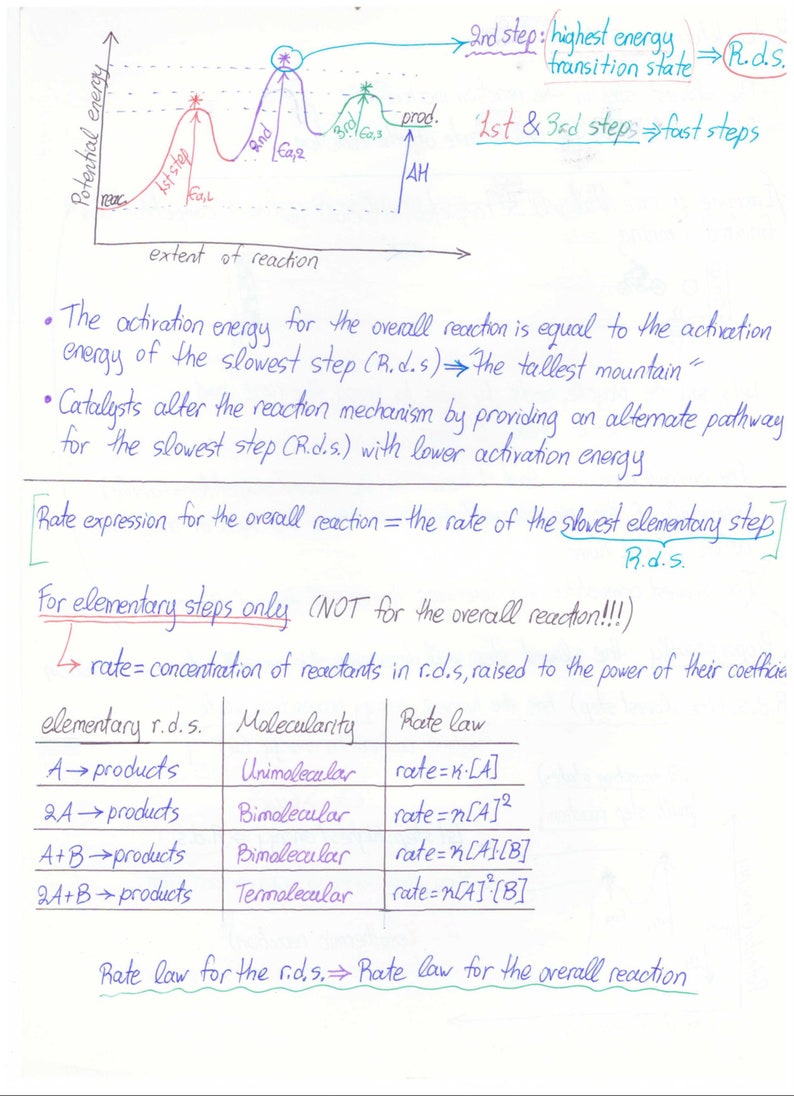 2nd step: highest energy transition state ⇒ R.d.s.
1st & 3rd steps ⇒ fast steps
Potential energy
reac.
1st step
Ea,1
2nd
Ea,2
3rd
Ea,3
prod.
ΔH
extent of reaction
• The activation energy for the overall reaction is equal to the activation
energy of the slowest step (R.d.s) ⇒ "the tallest mountain"
• Catalysts alter the reaction mechanism by providing an alternate pathway
for the slowest step (R.d.s.) with lower activation energy
[Rate expression for the overall reaction = the rate of the slowest elementary step]
R.d.s.
For elementary steps only (NOT for the overall reaction!!!)
↳ rate = concentration of reactants in r.d.s, raised to the power of their coefficie
elementary r.d.s. Molecularity Rate law
A → products Unimolecular rate = k·[A]
2A → products Bimolecular rate = k[A]²
A + B → products Bimolecular rate = k[A]·[B]
2A + B → products Termolecular rate = k[A]²·[B]
Rate law for the r.d.s. ⇒ Rate law for the overall reaction